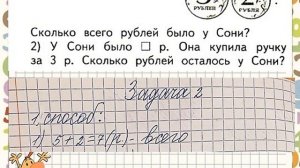 РУБЛЕЙ
РУБЛЯ
Сколько всего рублей было у Сони?
2) У Сони было □ р. Она купила ручку
за 3 р. Сколько рублей осталось у Сони?
Задача 2
1 способ:
1) 5+2=7(р)- всего